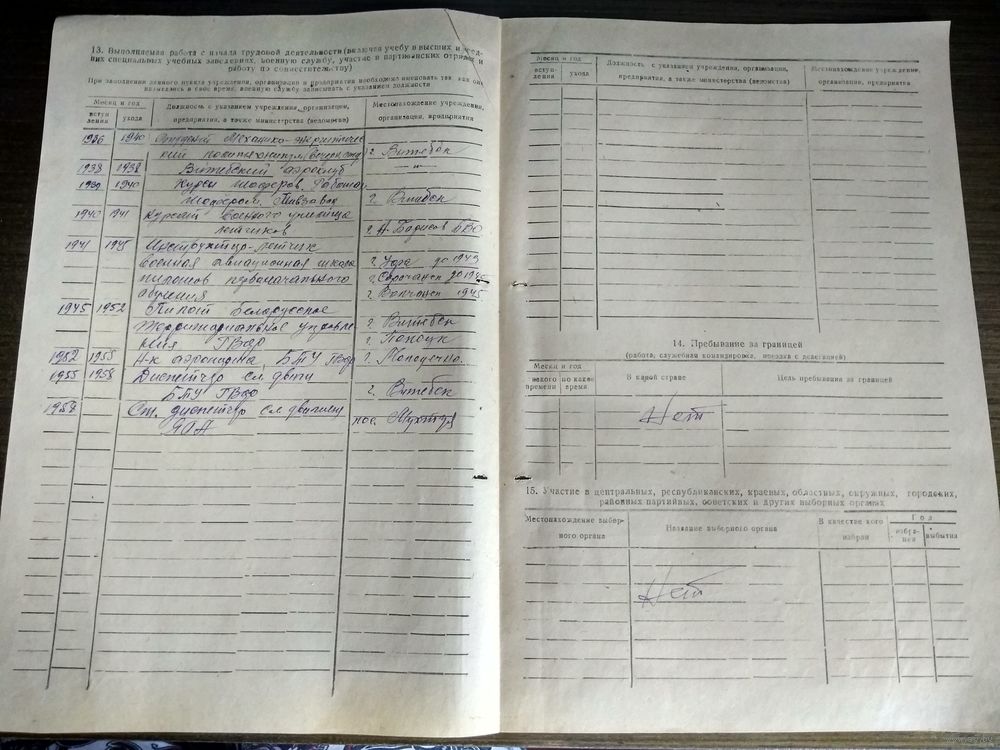 13. Выполняемая работа с начала трудовой деятельности (включая учебу в высших и сред-
них специальных учебных заведениях, военную службу, участие в партизанских отрядах и
работу по совместительству)
При заполнении данного пункта учреждения, организации и предприятия необходимо именовать так, как они
назывались в свое время, военную службу записывать с указанием должности
Месяц и год
вступ
ления
ухода
Должность с указанием учреждения, организации,
предприятия, а также министерства (ведомства)
Местонахождение учреждения,
организации, предприятия
1936 1940 Студент Механико-
г. Витебск
1938 1938 Витебский аэроклуб — " —
1939 1940 Курсы шоферов. Работал
шофером г. Витебск
1940 1941 Курсант Военного училища
летчиков г. Борисов БВО
1941 1945 Инструктор-летчик
Военная авиационная школа г. Уфа до 1943
пилотов первоначального г. Сорочинск до 1945
обучения г. Волчанск 1945
1945 1952 Пилот Белорусское
Территориальное управле г. Витебск
ния ГВФ г. Полоцк
1952 1955 Н-к аэропорта БТУ ГВФ г. Молодечно.
1955 1958 Диспетчер сл. движ
БТУ ГВФ г. Витебск
1958 Ст. диспетчер сл. движения
пос. Мухтуя
Месяц и год
вступ-
ления
ухода
Должность с указанием учреждения, организации,
предприятия, а также министерства (ведомства)
Местонахождение учреждения,
организации, предприятия
14. Пребывание за границей
(работа, служебная командировка, поездка с делегацией)
Месяц и год
с какого
времени
по какое
время
В какой стране
Цель пребывания за границей
Нет
15. Участие в центральных, республиканских, краевых, областных, окружных, городских,
районных партийных, советских и других выборных органах
Местонахождение выбор-
ного органа
Название выборного органа
В качестве кого
избран
Год
избра-
ния
выбытия
Нет